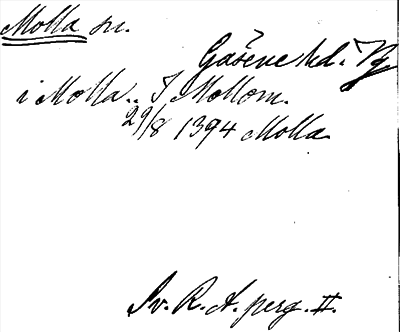 Molla sn.
Gåsene hd. Vg
i Molla.. I Mollom.
29/8 1394 Molla.
Sv. R. A. perg. II.